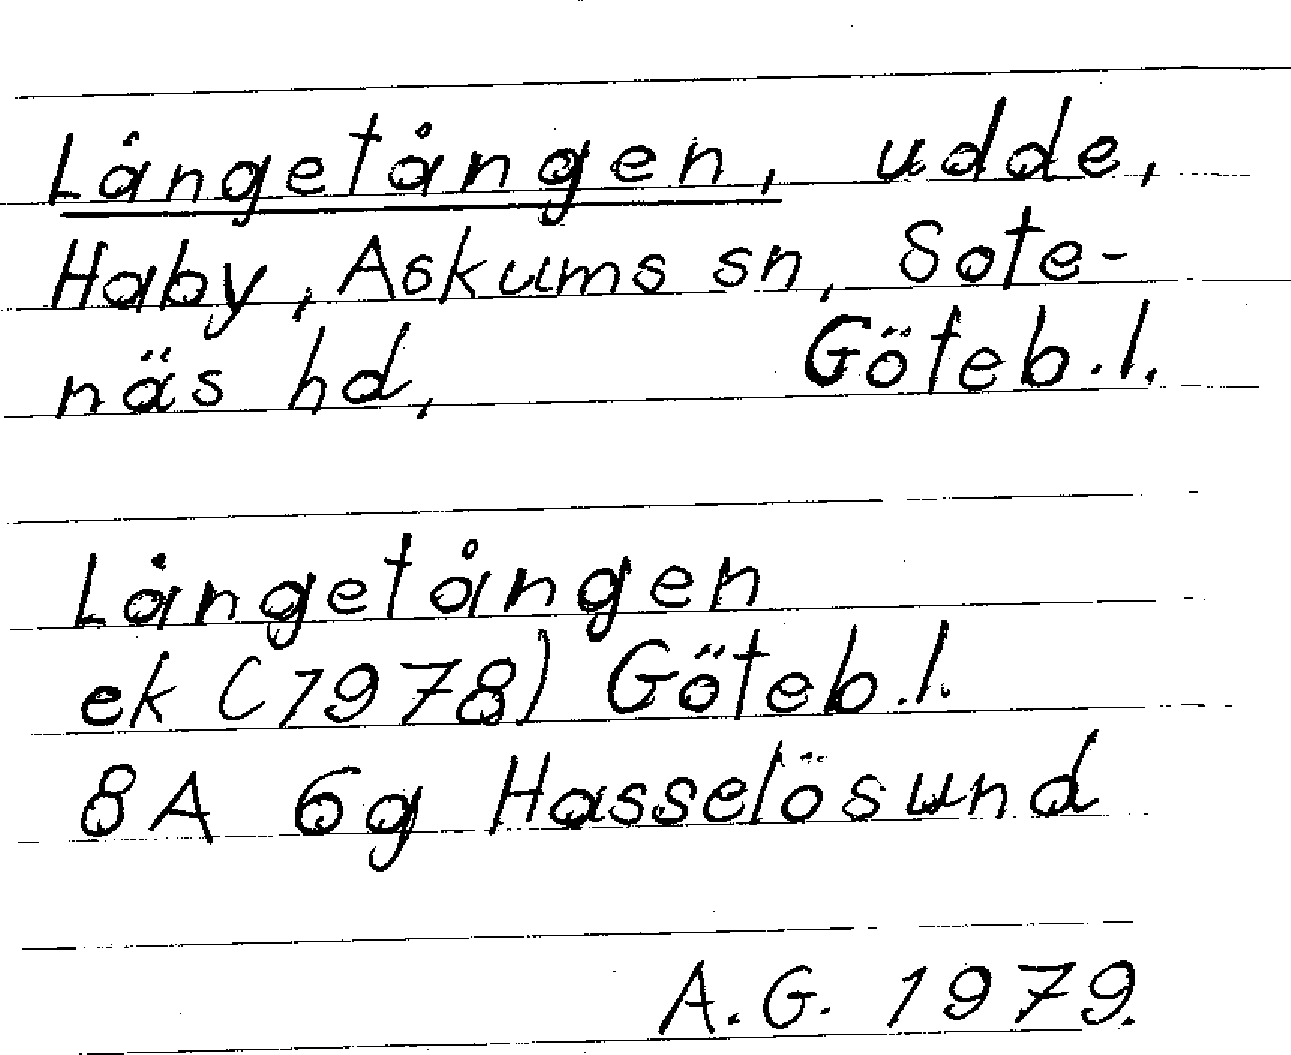 Långetången, udde,
Haby, Askums sn, Sote-
näs hd, Göteb.l.
Långetången
ek (1978) Göteb.l.
8A 6g Hasselösund
A.G. 1979.